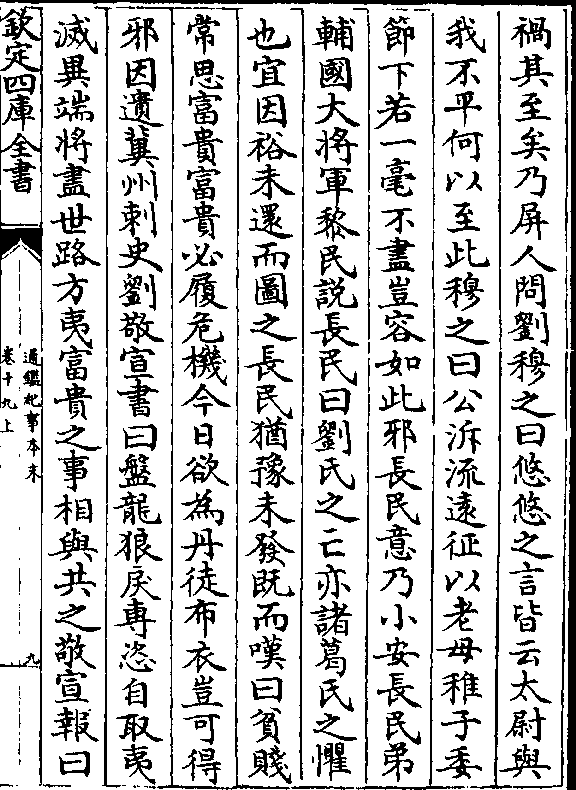 禍其至矣乃屏人問劉穆之曰悠悠之言皆云太尉與
我不平何以至此穆之曰公泝流遠征以老母稚子委
節下若一毫不盡豈容如此邪長民意乃小安長民弟
輔國大將軍黎民説長民曰劉氏之亡亦諸葛氏之懼
也宜因裕未還而圖之長民猶豫未發既而嘆曰貧賤
常思富貴富貴必履危機今日欲為丹徒布衣豈可得
邪因遺冀州刺史劉敬宣書曰盤龍狼戾專恣自取夷
滅異端將盡世路方夷富貴之事相與共之敬宣報曰
欽定四庫全書
通鑑紀事本末
卷十九上
九